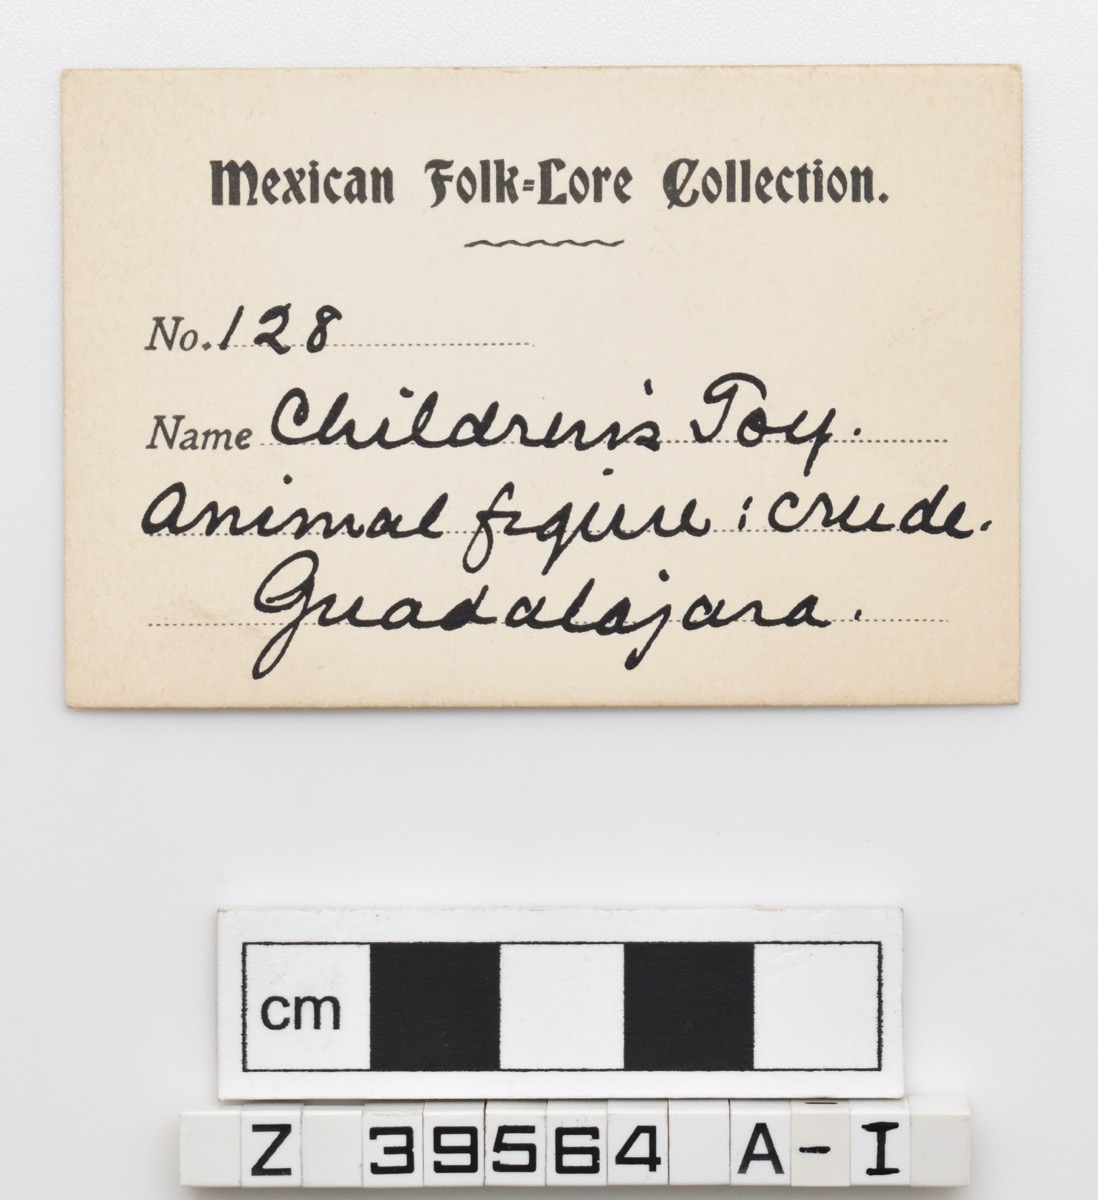 Mexican Folk-Lore Collection.
No. 128
Name Children's Toy.
Animal figure : crude.
Guadalajara.
cm
Z 39564 A-I